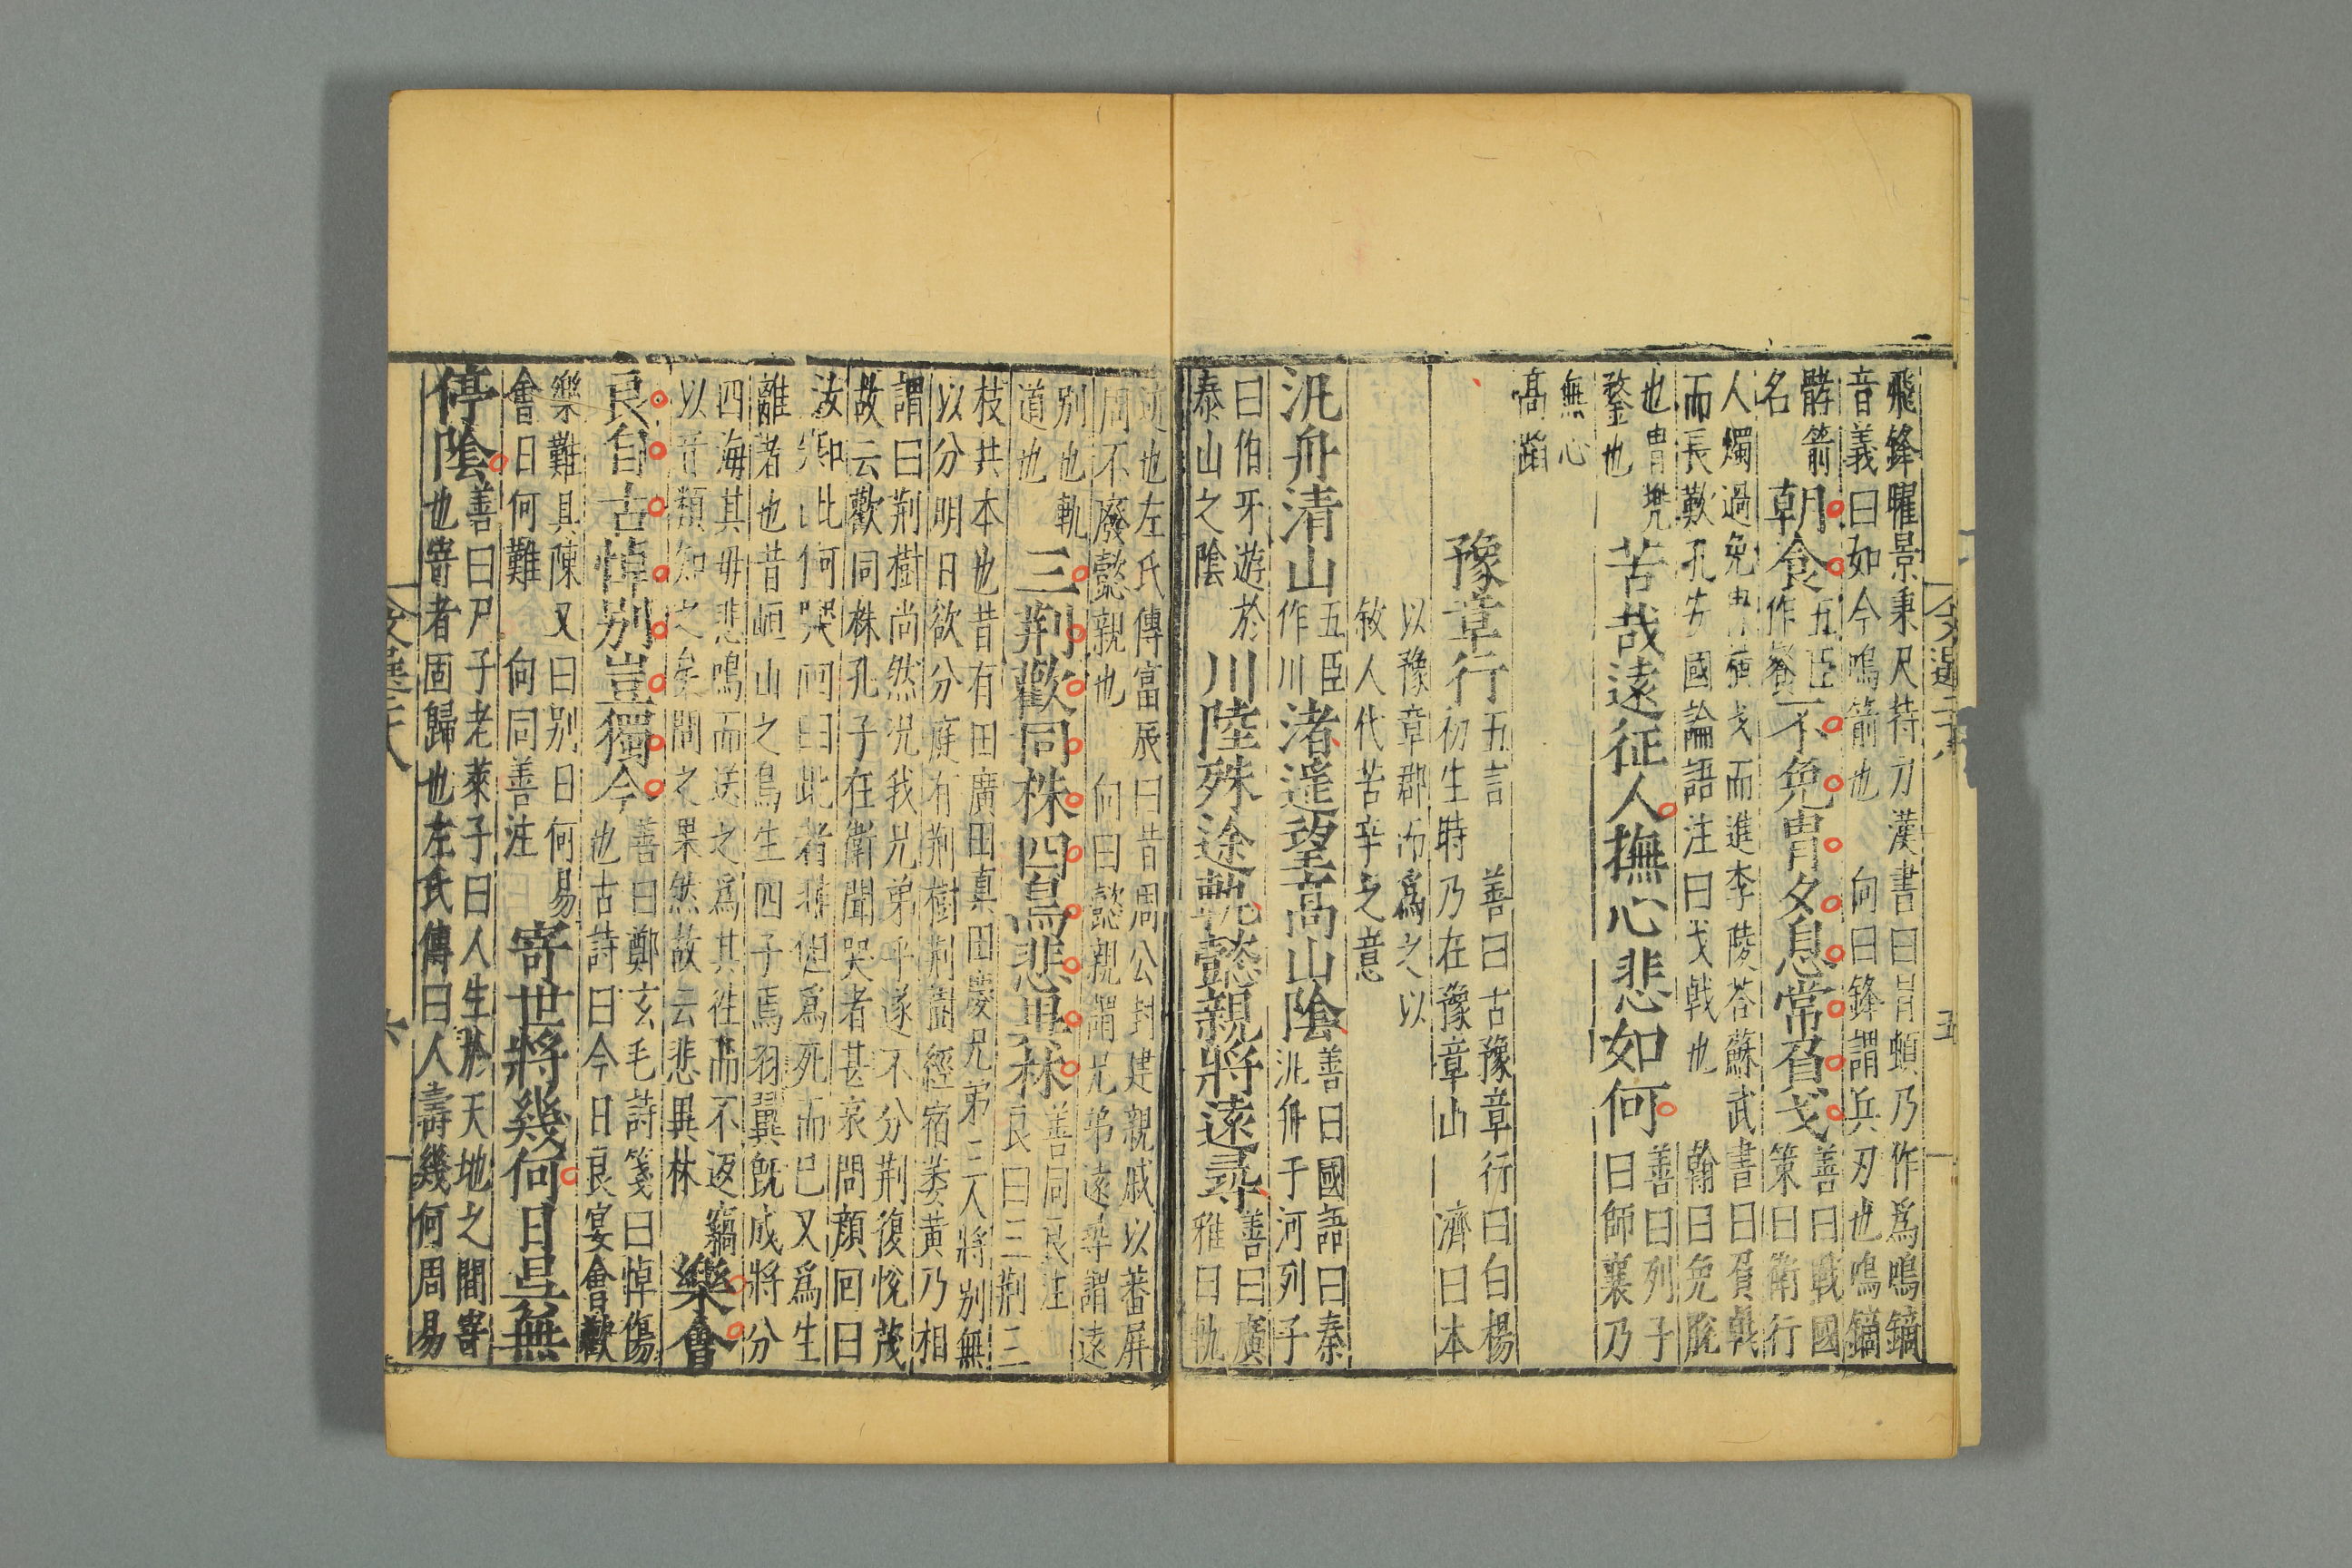 飛鋒曜景秉尺持刀漢書曰冒頓乃作爲鳴鏑
音義曰如今鳴箭也 向曰鋒謂兵刃也鳴鏑
髇箭
名
朝食
五臣
作餐
不免胄夕息常負戈
善曰戰國
策曰衛行
人燭過免胄橫戈而進李陵荅蘇武書曰負戟
而長歎孔安國論語注曰戈戟也 翰曰免脫
也胄兠
鍪也
苦哉遠征人撫心悲如何
善曰列子
曰師襄乃
無心
高蹈
豫章行
五言 善曰古豫章行曰白楊
初生時乃在豫章山 濟曰本
以豫章郡而爲之以
敘人代苦辛之意
汎舟清山
五臣
作川
渚遥望高山陰
善曰國語曰秦
汎舟于河列子
曰伯牙遊於
泰山之陰
川陸殊途軌懿親將遠尋
善曰廣
雅曰軌
文選二十八
五
迹也左氏傳富辰曰昔周公封建親戚以蕃屏
周不廢懿親也 向曰懿親謂兄弟遠尋謂遠
別也軌
道也
三荆歡同株四鳥悲異林
善同良注
良曰三荆三
枝共本也昔有田廣田真田慶兄弟三人將別無
以分明日欲分庭有荆樹荆樹經宿萎黄乃相
謂曰荆樹尚然况我兄弟乎遂不分荆復恱茂
故云歡同株孔子在衛聞哭者甚哀問顔回曰
汝知此何哭回曰此者非但爲死而已又爲生
離者也昔峘山之鳥生四子焉羽翼既成將分
四海其毋悲鳴而送之爲其往而不返竊
以音類知之矣問之果然故云悲異林
樂會
良自古悼別豈獨今
善曰鄭玄毛詩箋曰悼傷
也古詩曰今日良宴會歡
樂難具陳又曰別日何易
會日何難 向同善注
寄世將幾何日昃無
停隂
善曰尸子老萊子曰人生於天地之間寄
也寄者固歸也左氏傳曰人壽幾何周易
文選二十八
六